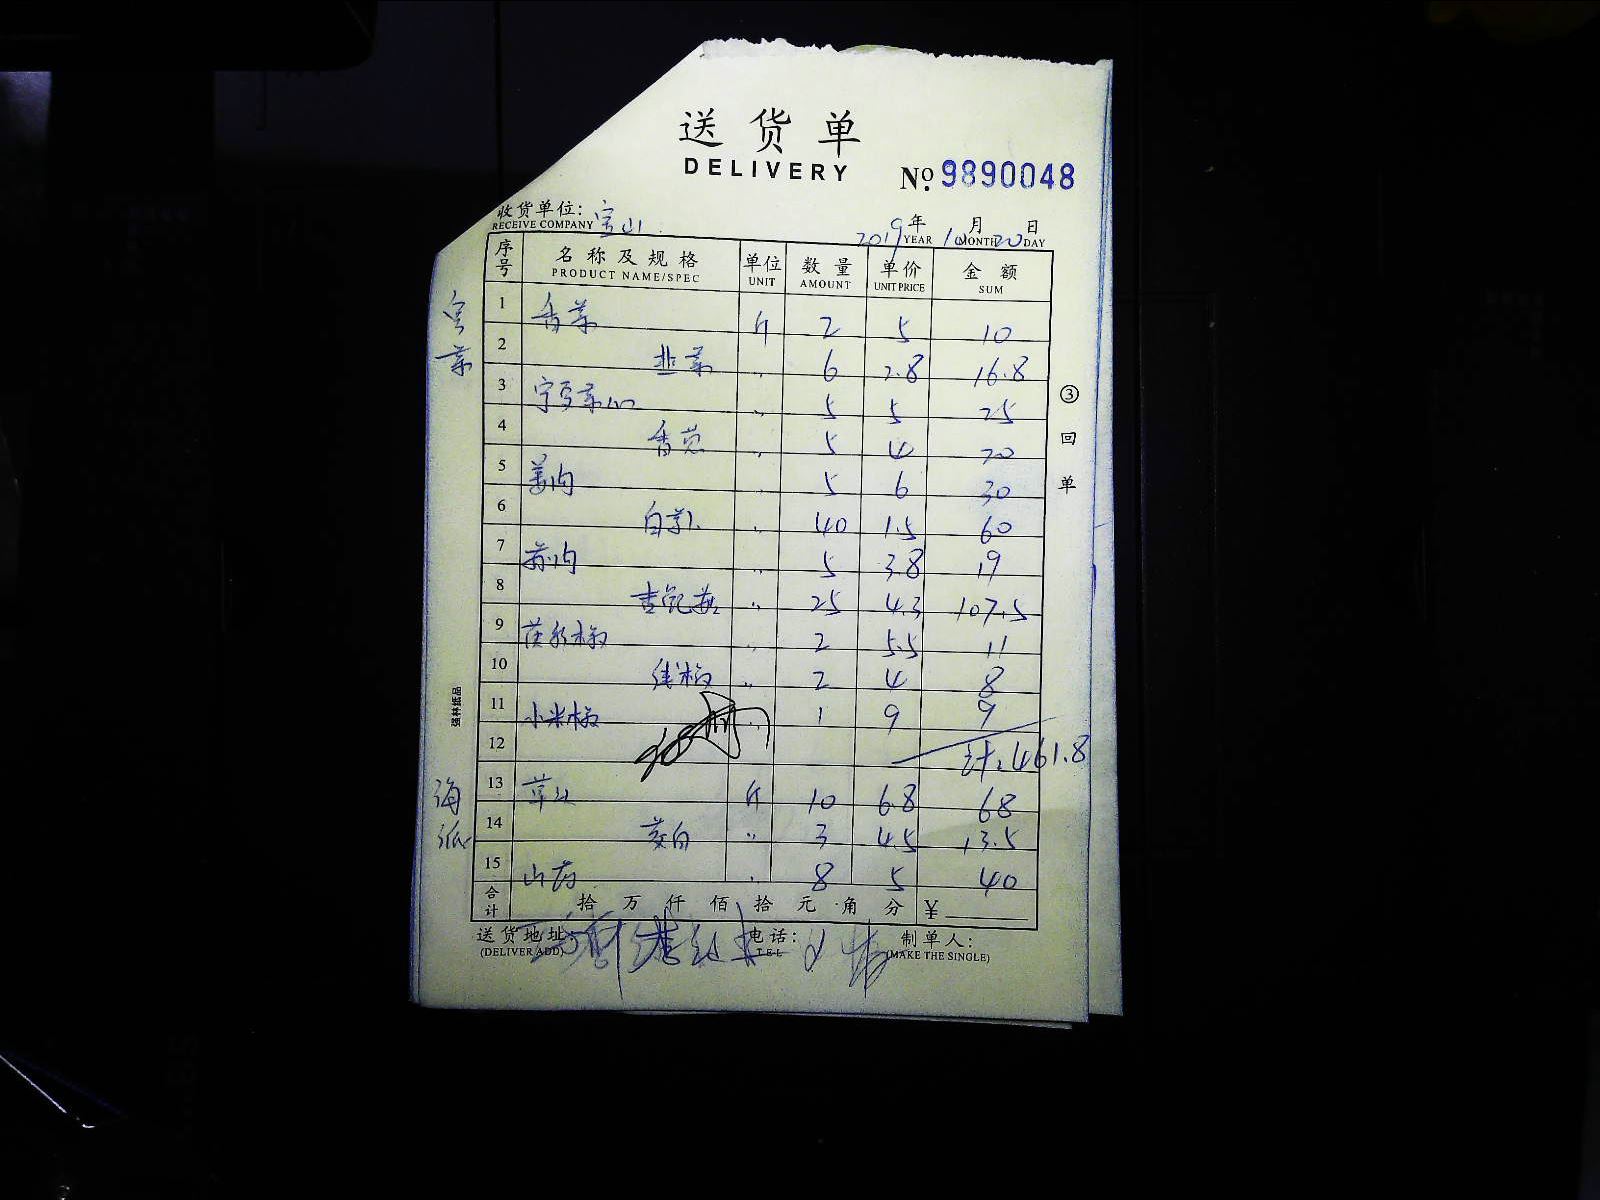 送货单
DELIVERY
No. 9890048
收货单位: 宝山
RECEIVE COMPANY
2019年 10月 20日
YEAR MONTH DAY
序号 名称及规格 单位 数量 单价 金额
PRODUCT NAME/SPEC UNIT AMOUNT UNIT PRICE SUM
1 香菜 斤 2 5 10
2 韭菜 〃 6 2.8 16.8
3 〃 5 5 25
4 香葱 〃 5 4 20
5 姜肉 〃 5 6 30
6 〃 40 1.5 60
7 〃 5 3.8 19
8 〃 25 4.3 107.5
9 〃 2 5.5 11
10 〃 2 4 8
11 小米椒 〃 1 9 9
12 计: 461.8
13 斤 10 6.8 68
14 茭白 〃 3 4.5 13.5
15 山药 〃 8 5 40
合计 拾 万 仟 佰 拾 元 角 分 ¥
送货地址: 电话: 制单人:
(DELIVER ADD) TEL (MAKE THE SINGLE)
③回单
海派
强林纸品